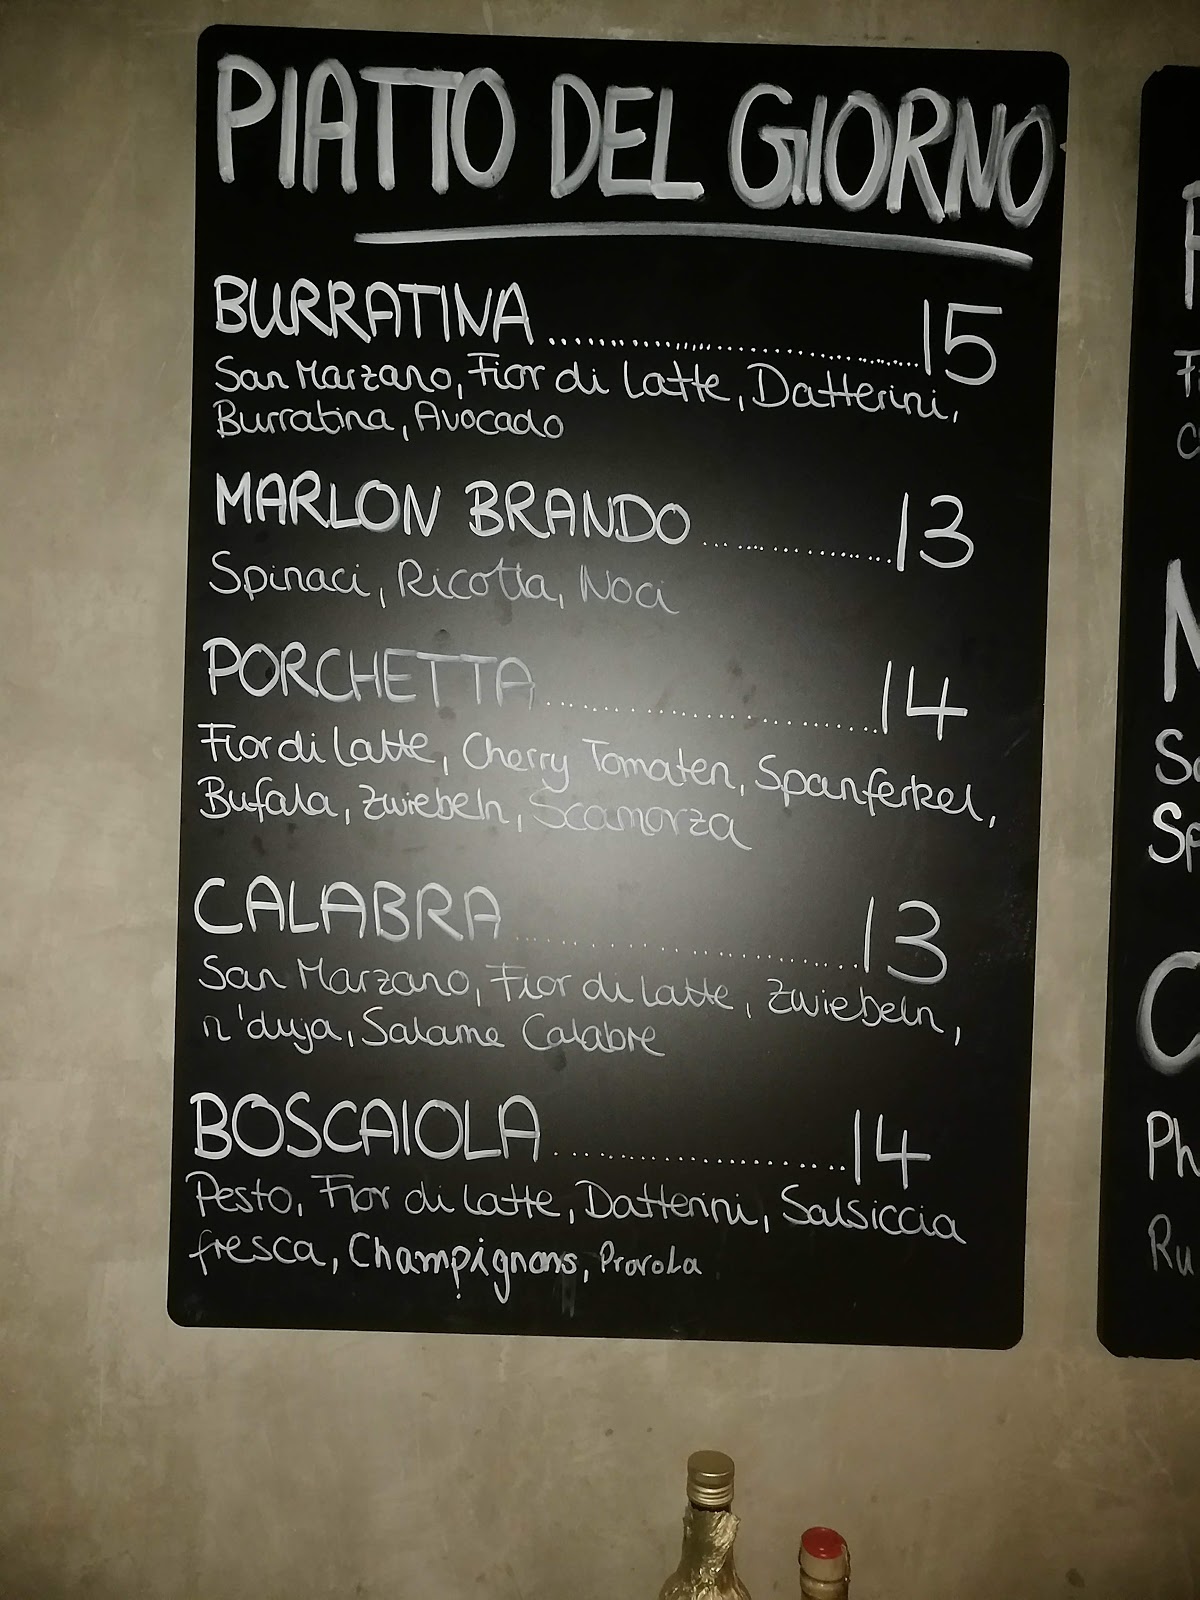 PIATTO DEL GIORNO
BURRATINA 15
San Marzano, Fior di latte, Datterini,
Burratina, Avocado
MARLON BRANDO 13
Spinaci, Ricotta, Noci
PORCHETTA 14
Fior di latte, Cherry Tomaten, Spanferkel,
Bufala, Zwiebeln, Scamorza
CALABRA 13
San Marzano, Fior di latte, Zwiebeln,
n'duja, Salame Calabre
BOSCAIOLA 14
Pesto, Fior di latte, Datterini, Salsiccia
fresca, Champignons, Provola